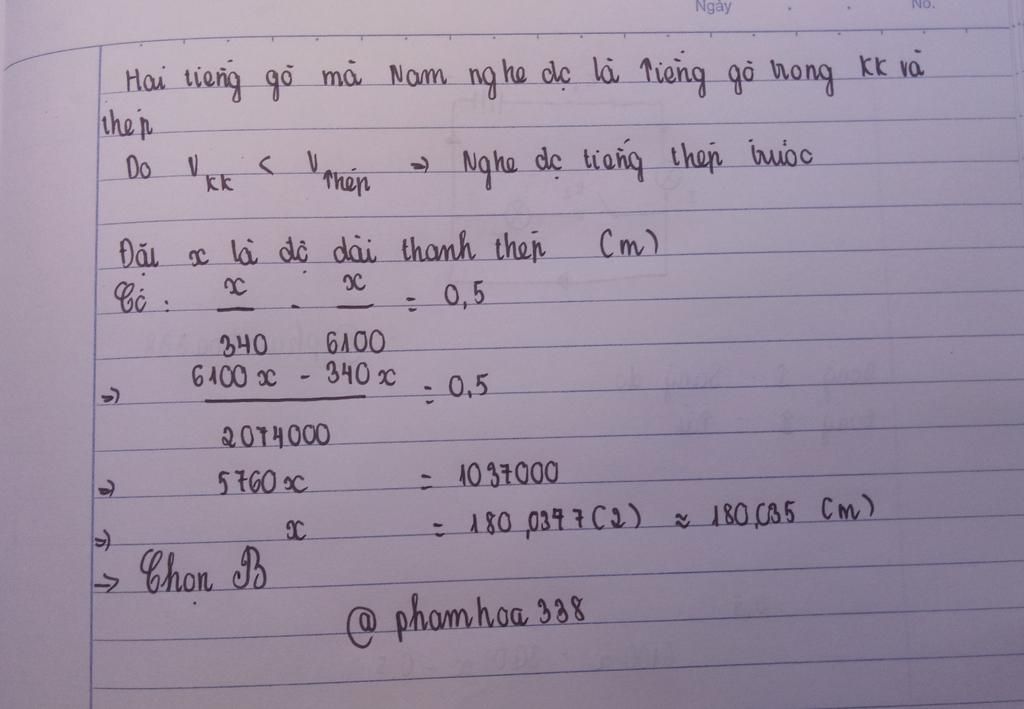 Ngày
No.
Hai tiếng gõ mà Nam nghe dc là Tiếng gõ trong KK và
thép
Do V KK < V Thép => Nghe dc tiếng thép trước
Đặt x là độ dài thanh thép (m)
Có : x/340 - x/6100 = 0,5
=> 6100x - 340x / 2074000 = 0,5
=> 5760x = 1037000
=> x = 180,0347(2) ≈ 180,035 (m)
→ Chọn B
@ phamhoa 338